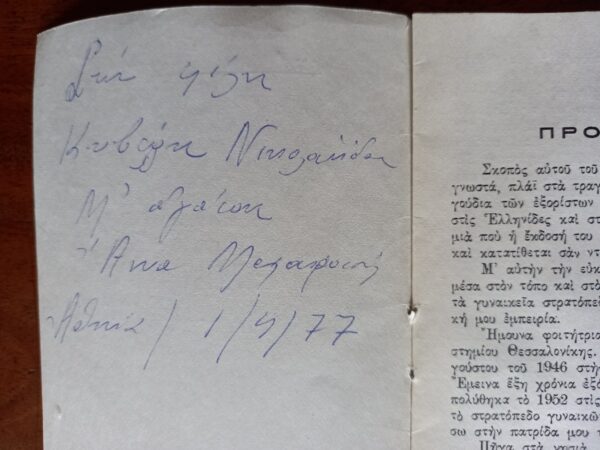 Στη φίλη
Κυβέλη Νικολαΐδου
Μ' αγάπη
Ἀθήνα / 1/4/77
ΠΡΟ
Σκοπὸς αὐτοῦ τοῦ
γνωστά, πλάϊ στὰ τραγ
γούδια τῶν ἐξορίστων
στὶς Ἑλληνίδες καὶ στ
μιὰ ποὺ ἡ ἔκδοσή του
καὶ κατατίθεται σὰν ντ
Μ' αὐτὴν τὴν εὐκ
μέσα στὸν τόπο καὶ στὸ
τὰ γυναικεῖα στρατόπεδ
κή μου ἐμπειρία.
Ἤμουνα φοιτήτρια
στημίου Θεσσαλονίκης.
γούστου τοῦ 1946 στὴ
Ἔμεινα ἕξη χρόνια ἐξό
πολύθηκα τὸ 1952 στὶς
τὸ στρατόπεδο γυναικῶ
σω στὴν πατρίδα μου τ
Πῆγα στὰ νησιὰ